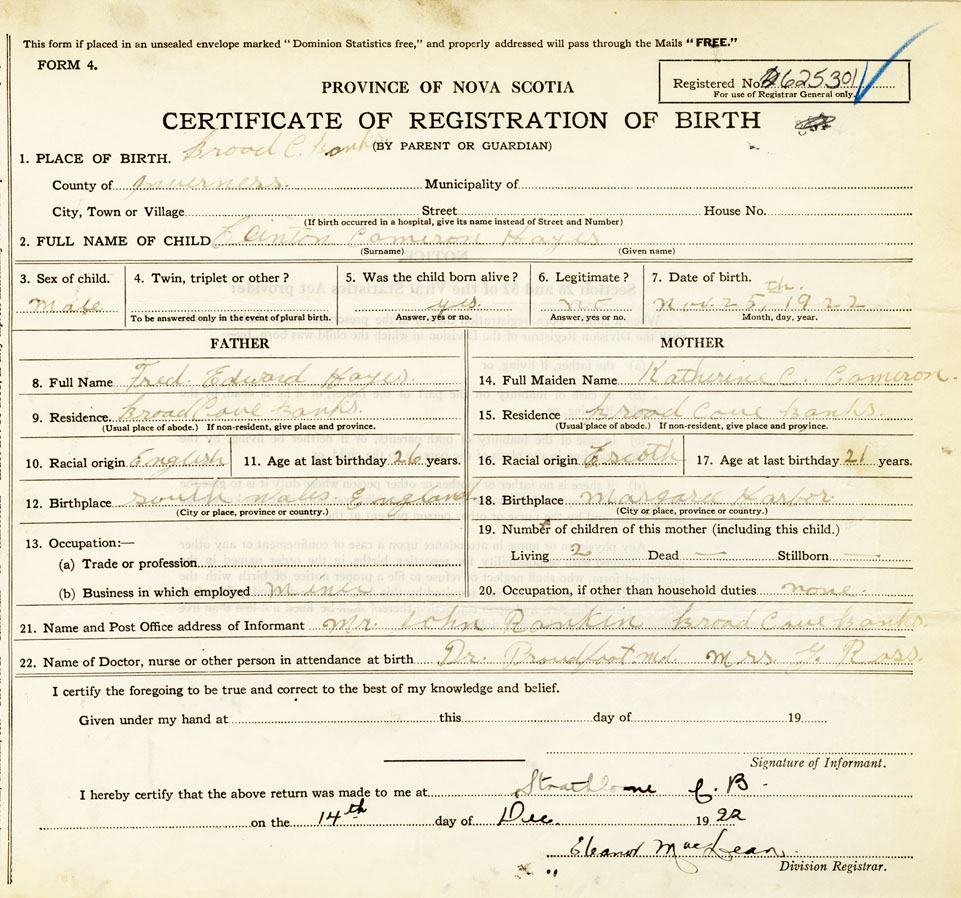 This form if placed in an unsealed envelope marked "Dominion Statistics free," and properly addressed will pass through the Mails "FREE."
FORM 4.
Registered No. 625301
For use of Registrar General only.
PROVINCE OF NOVA SCOTIA
CERTIFICATE OF REGISTRATION OF BIRTH
(BY PARENT OR GUARDIAN)
1. PLACE OF BIRTH. Broad C. Banks
County of Inverness Municipality of
City, Town or Village Street House No.
(If birth occurred in a hospital, give its name instead of Street and Number)
2. FULL NAME OF CHILD Clinton Cameron Hayes
(Surname) (Given name)
3. Sex of child. 4. Twin, triplet or other? 5. Was the child born alive? 6. Legitimate? 7. Date of birth.
Male yes. no Nov. 25th. 1922
To be answered only in the event of plural birth. Answer, yes or no. Answer, yes or no. Month, day, year.
FATHER MOTHER
8. Full Name Fred. Edward Hayes. 14. Full Maiden Name Katherine C. Cameron.
9. Residence Broad Cove Banks. 15. Residence Broad Cove Banks.
(Usual place of abode.) If non-resident, give place and province. (Usual place of abode.) If non-resident, give place and province.
10. Racial origin English 11. Age at last birthday 26 years. 16. Racial origin 17. Age at last birthday 21 years.
12. Birthplace South Wales England 18. Birthplace Margaree Harbor
(City or place, province or country.) (City or place, province or country.)
13. Occupation:— 19. Number of children of this mother (including this child.)
(a) Trade or profession Living 2 Dead — Stillborn —
(b) Business in which employed Miner 20. Occupation, if other than household duties none.
21. Name and Post Office address of Informant Mr. John Rankin Broad Cove Banks.
22. Name of Doctor, nurse or other person in attendance at birth Dr. Broudfoot md. Mrs. G. Ross.
I certify the foregoing to be true and correct to the best of my knowledge and belief.
Given under my hand at this day of 19
Signature of Informant.
I hereby certify that the above return was made to me at Strathlorne C. B.
on the 14th day of Dec. 1922
Eleanor MacLean,
Division Registrar.